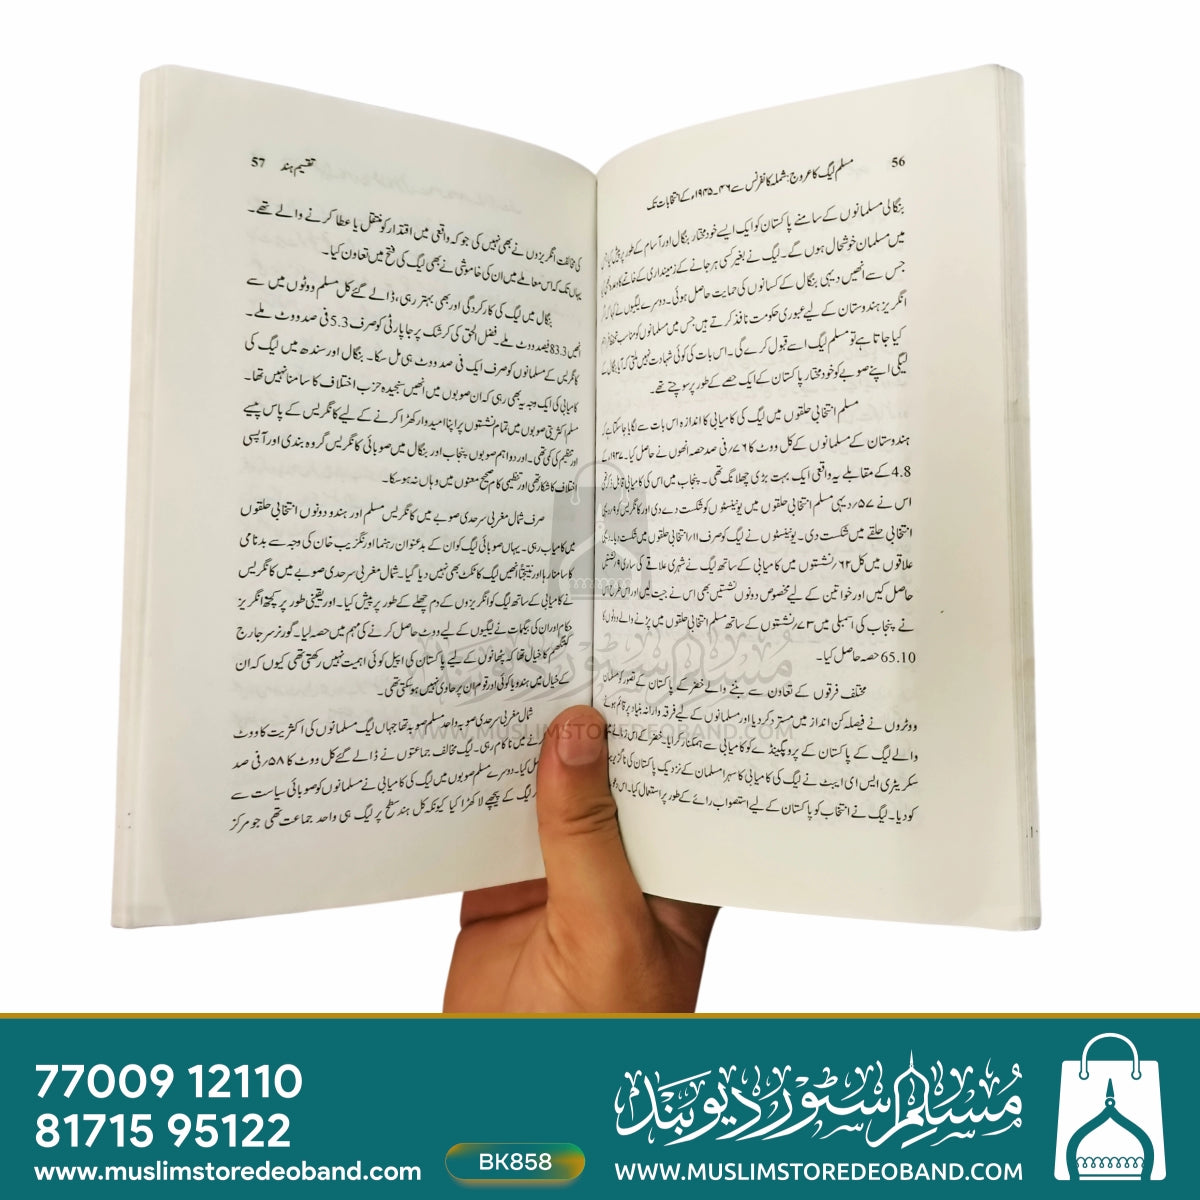 56
مسلم لیگ کا عروج: شملہ کانفرنس سے ۴۶۔۱۹۴۵ء کے انتخابات تک
بنگالی مسلمانوں کے سامنے پاکستان کو ایک ایسے خود مختار بنگال اور آسام کے طور پر پیش کیا
میں مسلمان خوشحال ہوں گے۔ لیگ نے بغیر کسی ہرجانے کے زمینداری کے خاتمے کا وعدہ
جس سے انھیں دیہی بنگال کے کسانوں کی حمایت حاصل ہوئی۔ دوسرے لیگیوں نے کہا کہ
انگریز ہندوستان کے لیے عبوری حکومت نافذ کرتے ہیں جس میں مسلمانوں کو مناسب
کیا جاتا ہے تو مسلم لیگ اسے قبول کرے گی۔ اس بات کی کوئی شہادت نہیں ملتی کہ آیا بنگال کے
لیگی اپنے صوبے کو خود مختار پاکستان کے ایک حصے کے طور پر سوچتے تھے۔
مسلم انتخابی حلقوں میں لیگ کی کامیابی کا اندازہ اس بات سے لگایا جا سکتا ہے کہ
ہندوستان کے مسلمانوں کے کل ووٹ کا ۷۶ فی صد حصہ انھوں نے حاصل کیا۔ ۱۹۳۷ء کے
4.8 کے مقابلے یہ واقعی ایک بہت بڑی چھلانگ تھی۔ پنجاب میں اس کی کامیابی قابل ذکر تھی
اس نے ۵۷؍ دیہی مسلم انتخابی حلقوں میں یونینسٹوں کو شکست دے دی اور کانگریس کو ۹؍
انتخابی حلقے میں شکست دی۔ یونینسٹوں نے لیگ کو صرف ۱۱؍ انتخابی حلقوں میں شکست دیا۔
علاقوں میں کل ۶۲؍ نشستوں میں کامیابی کے ساتھ لیگ نے شہری علاقے کی ساری ۹؍ نشستیں
حاصل کیں اور خواتین کے لیے مخصوص دونوں نشستیں بھی اس نے جیت لیں اور اس طرح اس
نے پنجاب کی اسمبلی میں ۷۳؍ نشستوں کے ساتھ مسلم انتخابی حلقوں میں پڑنے والے ووٹوں کا
65.10 حصہ حاصل کیا۔
مختلف فرقوں کے تعاون سے بننے والے خضر کے پاکستان کے تصور کو مسلمان
ووٹروں نے فیصلہ کن انداز میں مسترد کر دیا اور مسلمانوں کے لیے فرقہ وارانہ بنیاد پر قائم ہونے
والے لیگ کے پاکستان کے پروپیگنڈے کو کامیابی سے ہمکنار کرایا۔ خضر کے اس
سکریٹری ایس ای ایبٹ نے لیگ کی کامیابی کا سہرا مسلمان کے نزدیک پاکستان کی ناگزیر
کو دیا۔ لیگ نے انتخاب کو پاکستان کے لیے استصواب رائے کے طور پر استعمال کیا۔ اس
تقسیم ہند
57
کی مخالفت انگریزوں نے بھی نہیں کی جو کہ واقعی میں اقتدار کو منتقل یا عطا کرنے والے تھے۔
یہاں تک کہ اس معاملے میں ان کی خاموشی نے بھی لیگ کی فتح میں تعاون کیا۔
بنگال میں لیگ کی کارکردگی اور بھی بہتر رہی، ڈالے گئے کل مسلم ووٹوں میں سے
انھیں 83.3 فیصد ووٹ ملے۔ فضل الحق کی کرشک پرجا پارٹی کو صرف 5.3 فی صد ووٹ ملے۔
کانگریس کے مسلمانوں کو صرف ایک فی صد ووٹ ہی مل سکا۔ بنگال اور سندھ میں لیگ کی
کامیابی کی ایک وجہ یہ بھی رہی کہ ان صوبوں میں انھیں سنجیدہ حزب اختلاف کا سامنا نہیں تھا۔
مسلم اکثریتی صوبوں میں تمام نشستوں پر اپنا امیدوار کھڑا کرنے کے لیے کانگریس کے پاس پیسے
اور تنظیم کی کمی تھی۔ اور دو اہم صوبوں پنجاب اور بنگال میں صوبائی کانگریس گروہ بندی اور آپسی
اختلاف کا شکار تھی اور تنظیمی کام صحیح معنوں میں وہاں نہ ہو سکا۔
صرف شمال مغربی سرحدی صوبے میں کانگریس مسلم اور ہندو دونوں انتخابی حلقوں
میں کامیاب رہی۔ یہاں صوبائی لیگ کو ان کے بدعنوان رہنما اورنگزیب خان کی وجہ سے بدنامی
کا سامنا رہا اور نتیجتاً انھیں لیگ کا ٹکٹ بھی نہیں دیا گیا۔ شمال مغربی سرحدی صوبے میں کانگریس
نے کامیابی کے ساتھ لیگ کو انگریزوں کے دم چھلے کے طور پر پیش کیا۔ اور یقینی طور پر کچھ انگریز
حکام اور ان کی بیگمات نے لیگیوں کے لیے ووٹ حاصل کرنے کی مہم میں حصہ لیا۔ گورنر سر جارج
کننگھم کا خیال تھا کہ پٹھانوں کے لیے پاکستان کی اپیل کوئی اہمیت نہیں رکھتی تھی کیوں کہ ان
کے خیال میں ہندو یا کوئی اور قوم ان پر حاوی نہیں ہو سکتی تھی۔
شمال مغربی سرحدی صوبہ واحد مسلم صوبہ تھا جہاں لیگ مسلمانوں کی اکثریت کا ووٹ
نے میں ناکام رہی۔ لیگ مخالف جماعتوں نے ڈالے گئے کل ووٹ کا ۵۸؍ فی صد
کیا۔ دوسرے مسلم صوبوں میں لیگ کی کامیابی نے مسلمانوں کو صوبائی سیاست سے
لیگ کے پیچھے لا کھڑا کیا کیونکہ کل ہند سطح پر لیگ ہی واحد جماعت تھی جو مرکز
مسلم سٹور دیوبند
WWW.MUSLIMSTOREDEOBAND.COM
77009 12110
81715 95122
www.muslimstoredeoband.com
BK858
مسلم سٹور دیوبند
WWW.MUSLIMSTOREDEOBAND.COM